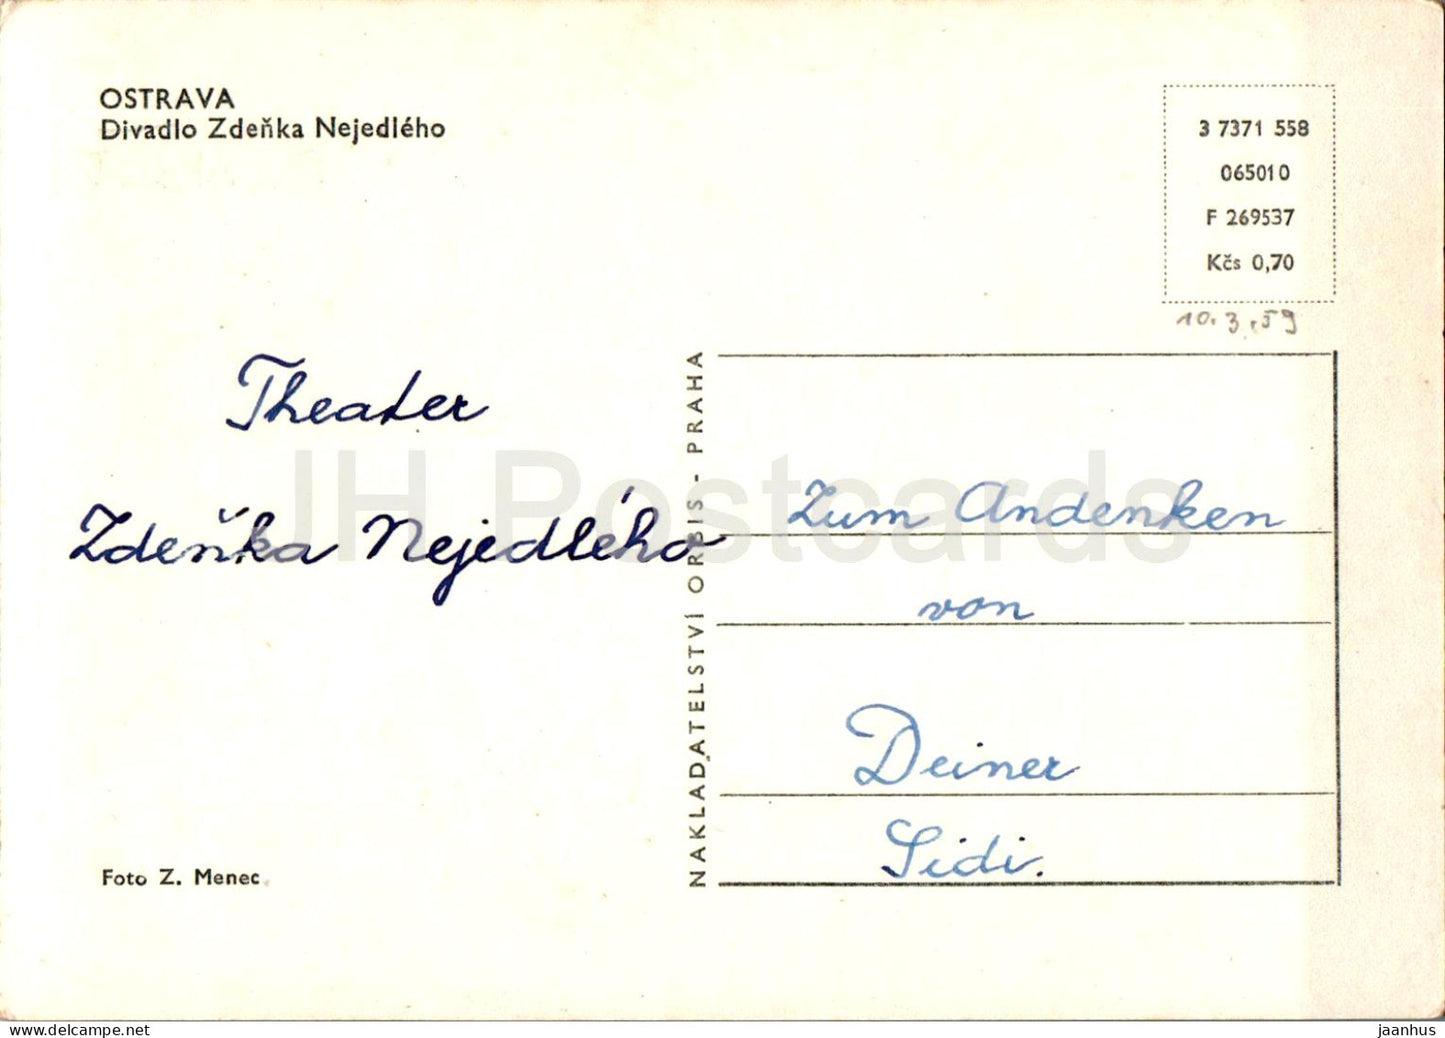 OSTRAVA
Divadlo Zdeňka Nejedlého
3 7371 558
065010
F 269537
Kčs 0,70
10.3.59
Theater
Zdeňka Nejedlého
NAKLADATELSTVÍ ORBIS - PRAHA
Zum Andenken
von
Deiner
Sidi.
Foto Z. Menec
JH Postcards
delcampe.net
jaanhus